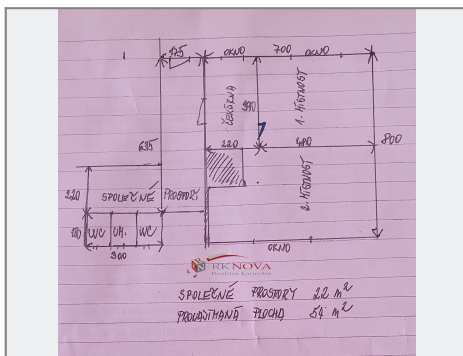 175 OKNO 700 OKNO
ČEKÁRNA
390
1. MÍSTNOST
635
220 480 800
220
SPOLEČNÉ PROSTORY
2. MÍSTNOST
WC UM. WC
300
OKNO
RK NOVA
Realitní kancelář
SPOLEČNÉ PROSTORY 22 m²
PRONAJÍMANÁ PLOCHA 54 m²